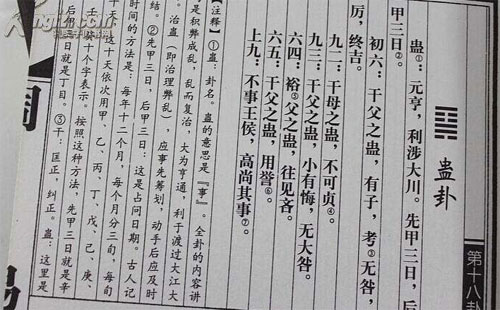 第十八卦
蛊卦
蛊①：元亨，利涉大川。先甲三日，后
甲三日②。
初六：干父之蛊，有子，考③无咎，
厉，终吉。
九二：干母之蛊，不可贞④。
九三：干父之蛊，小有悔，无大咎。
六四：裕⑤父之蛊，往见吝。
六五：干父之蛊，用誉⑥。
上九：不事王侯，高尚其事⑦。
【注释】①蛊：卦名。蛊的意思是『事』。全卦的内容讲
是积弊成乱，乱而复治，大为亨通，利于渡过大江大
。治蛊（即治理弊乱），应事先筹划，动手后应及时
结。②先甲三日，后甲三日：这是占问日期。古人记
时间的方法是：每年十二个月，每个月分三旬，每旬
十天，这十天依次用甲、乙、丙、丁、戊、己、庚、
壬、癸十个字表示。按照这种方法，先甲三日就是辛
后甲三日就是丁日。③干：匡正，纠正。蛊：这里是
周
易